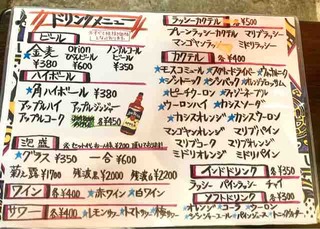 ドリンクメニュー
ビール
金麦 ¥380
orion びんビール ¥600
ノンアルコールビール ¥350
ハイボール
★角ハイボール ¥380
アップルハイ アップルジンジャー
アップルコーク 各¥450
泡盛
★グラス ¥350 一合 ¥600
菊之露 ¥1700 残波 ¥2000
ワイン 各¥400 ★赤ワイン ★白ワイン
サワー 各¥400 ★レモンサワー ★トマトサワー ★梅サワー
ラッシーカクテル 各¥500
プレーンラッシーカクテル マリブラッシー
マンゴヤンラッシー ミドリラッシー
カクテル 各¥400
★モスコミュール ★スクリュードライバー ★カルアミルク
★ジントニック ★ジンバック ★オレンジブロッサム
★ピーチウーロン ★ファジーネーブル
★ウーロンハイ ★カシスソーダ
★カシスオレンジ ★カシスウーロン
マンゴヤンオレンジ マリブパイン
マリブコーク マリブオレンジ
ミドリオレンジ ミドリパイン
インドドリンク 各¥350
ラッシー パインラッシー チャイ
ソフトドリンク 各¥300
★オレンジ ★コーラ ★ウーロン
★ジンジャーエール ★パインジュース ★トニックウォーター